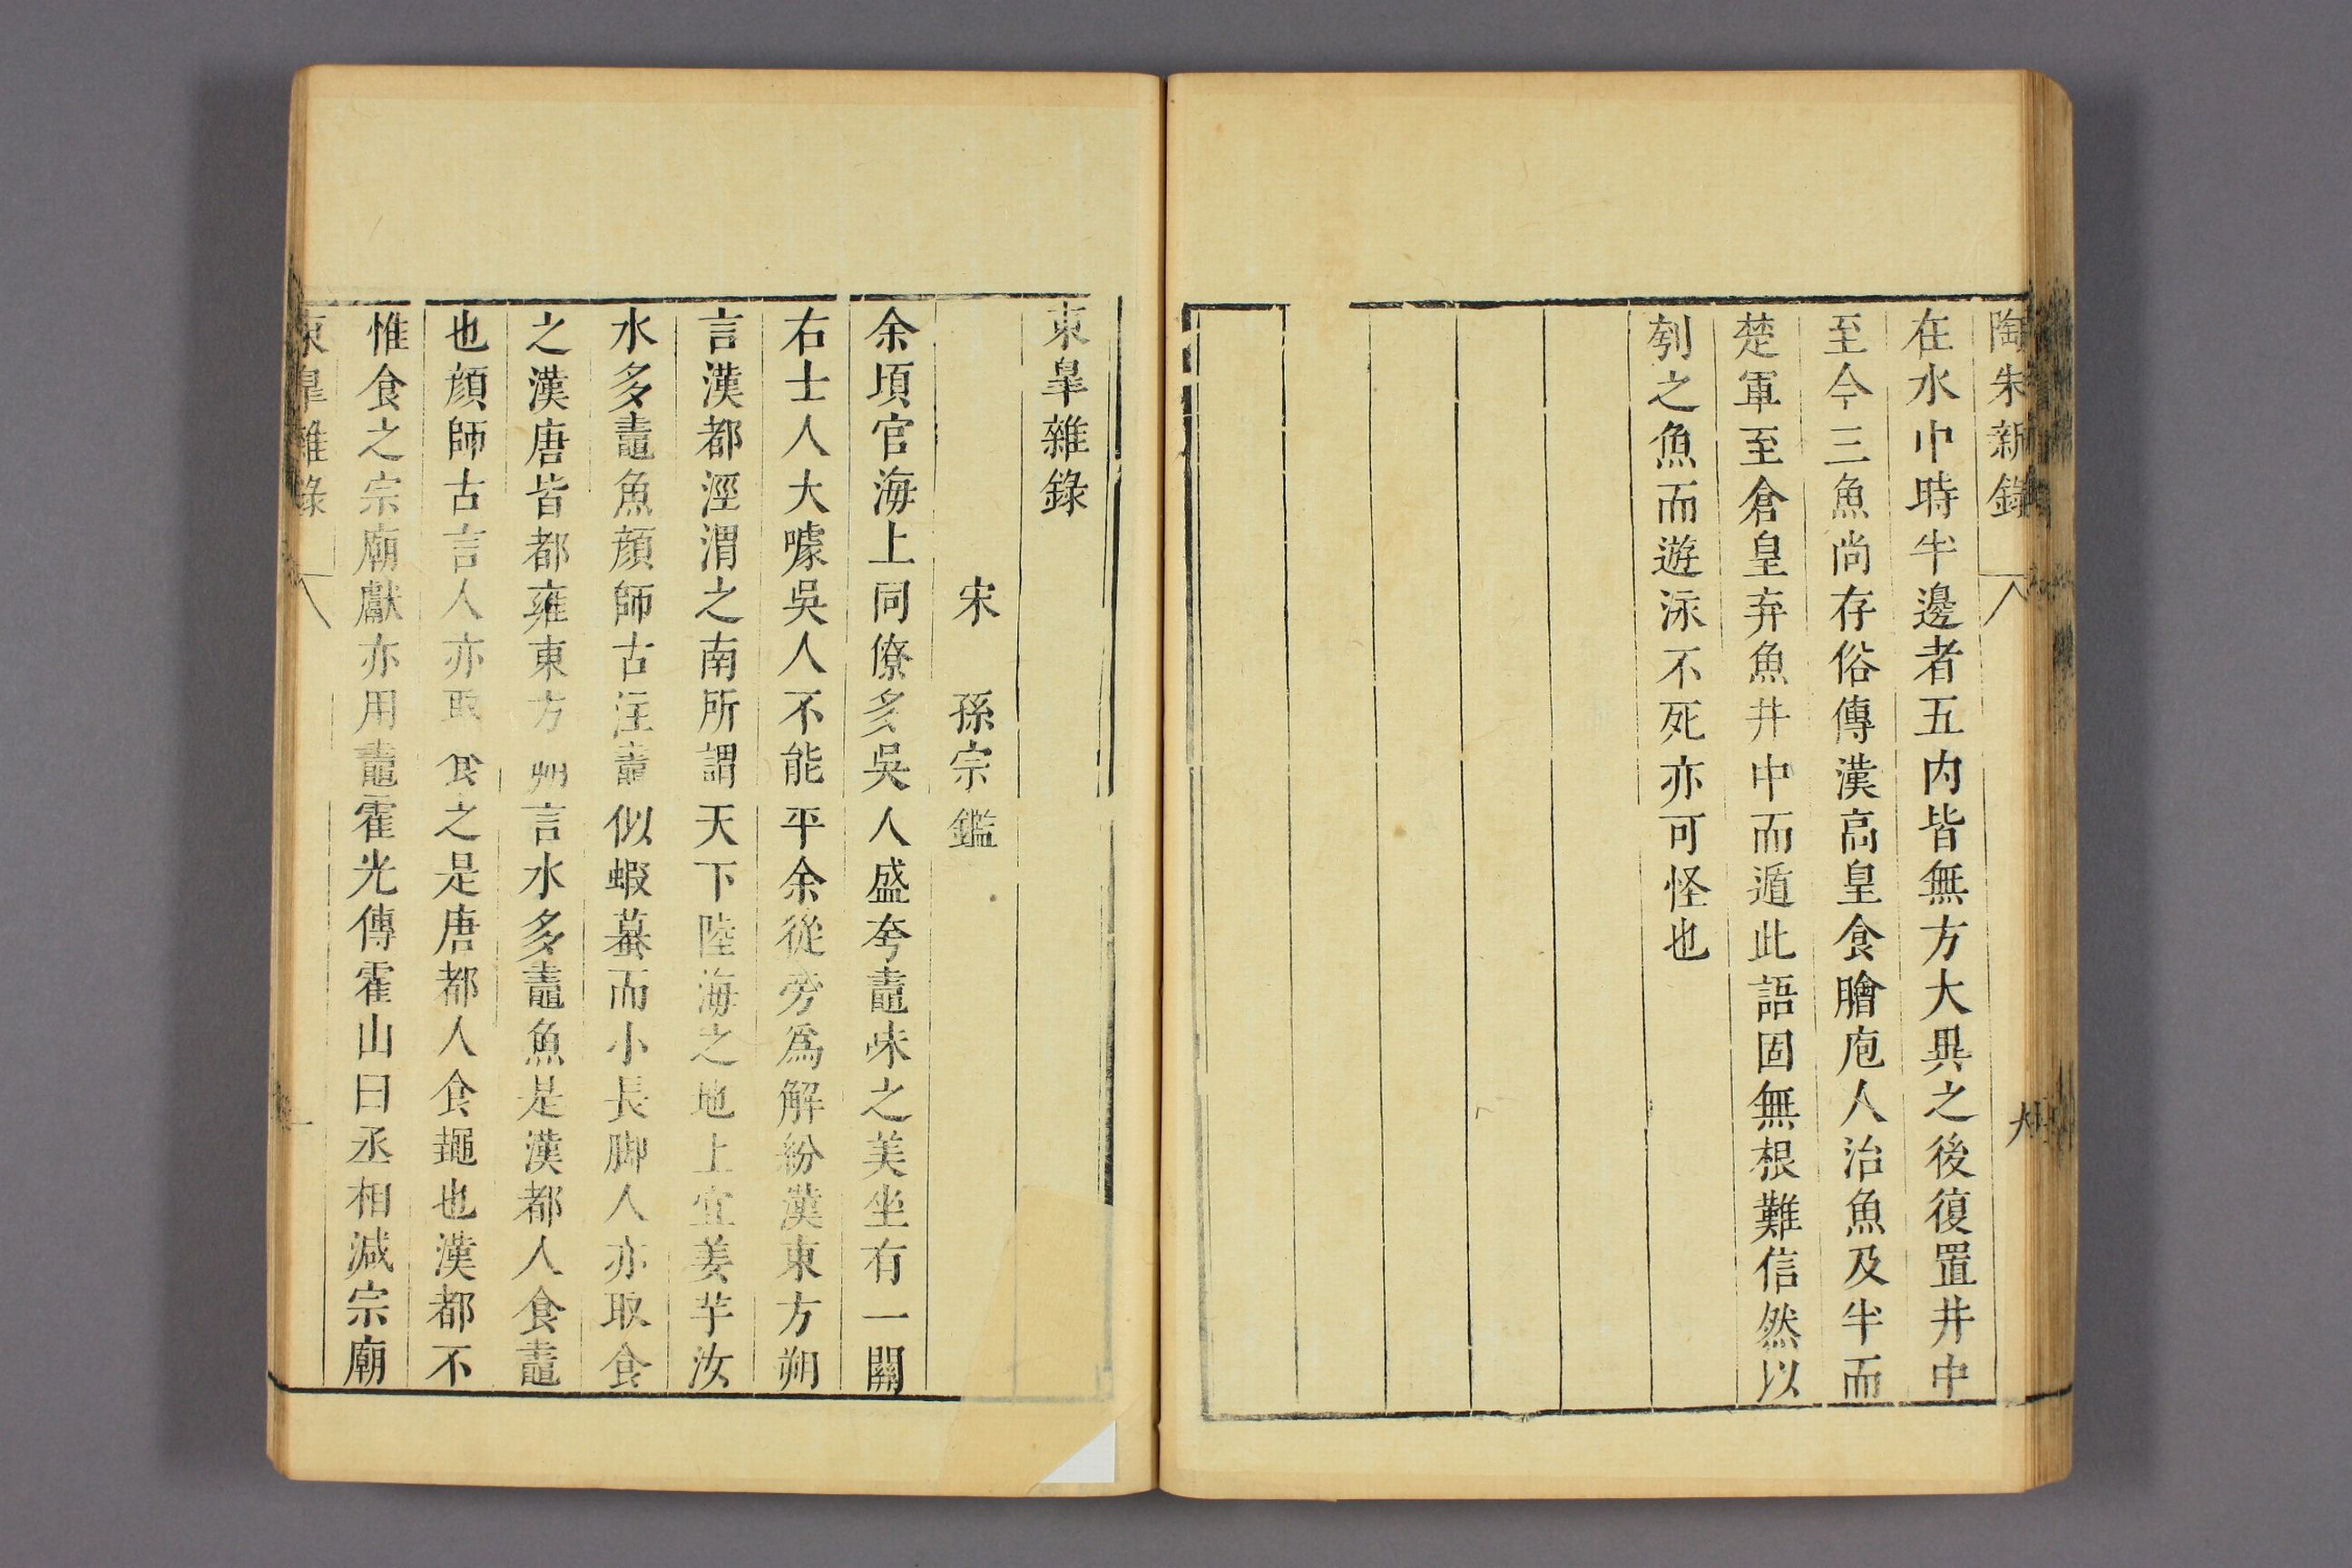 陶朱新錄
在水中時半邊者五内皆無方大異之後復置井中
至今三魚尚存俗傳漢高皇食膾庖人治魚及半而
楚軍至倉皇弃魚井中而遁此語固無根難信然以
刳之魚而遊泳不死亦可怪也
東皐雜錄
宋 孫宗鑑
余頃官海上同僚多吳人盛夸鼃味之美坐有一關
右士人大噱吳人不能平余從旁爲解紛漢東方朔
言漢都涇渭之南所謂天下陸海之地土宜姜芋汝
水多鼃魚顔師古注鼃似蝦蟇而小長脚人亦取食
之漢唐皆都雍東方朔言水多鼃魚是漢都人食鼃
也顔師古言人亦取食之是唐都人食鼃也漢都不
惟食之宗廟獻亦用鼃霍光傳霍山曰丞相減宗廟
東皐雜錄